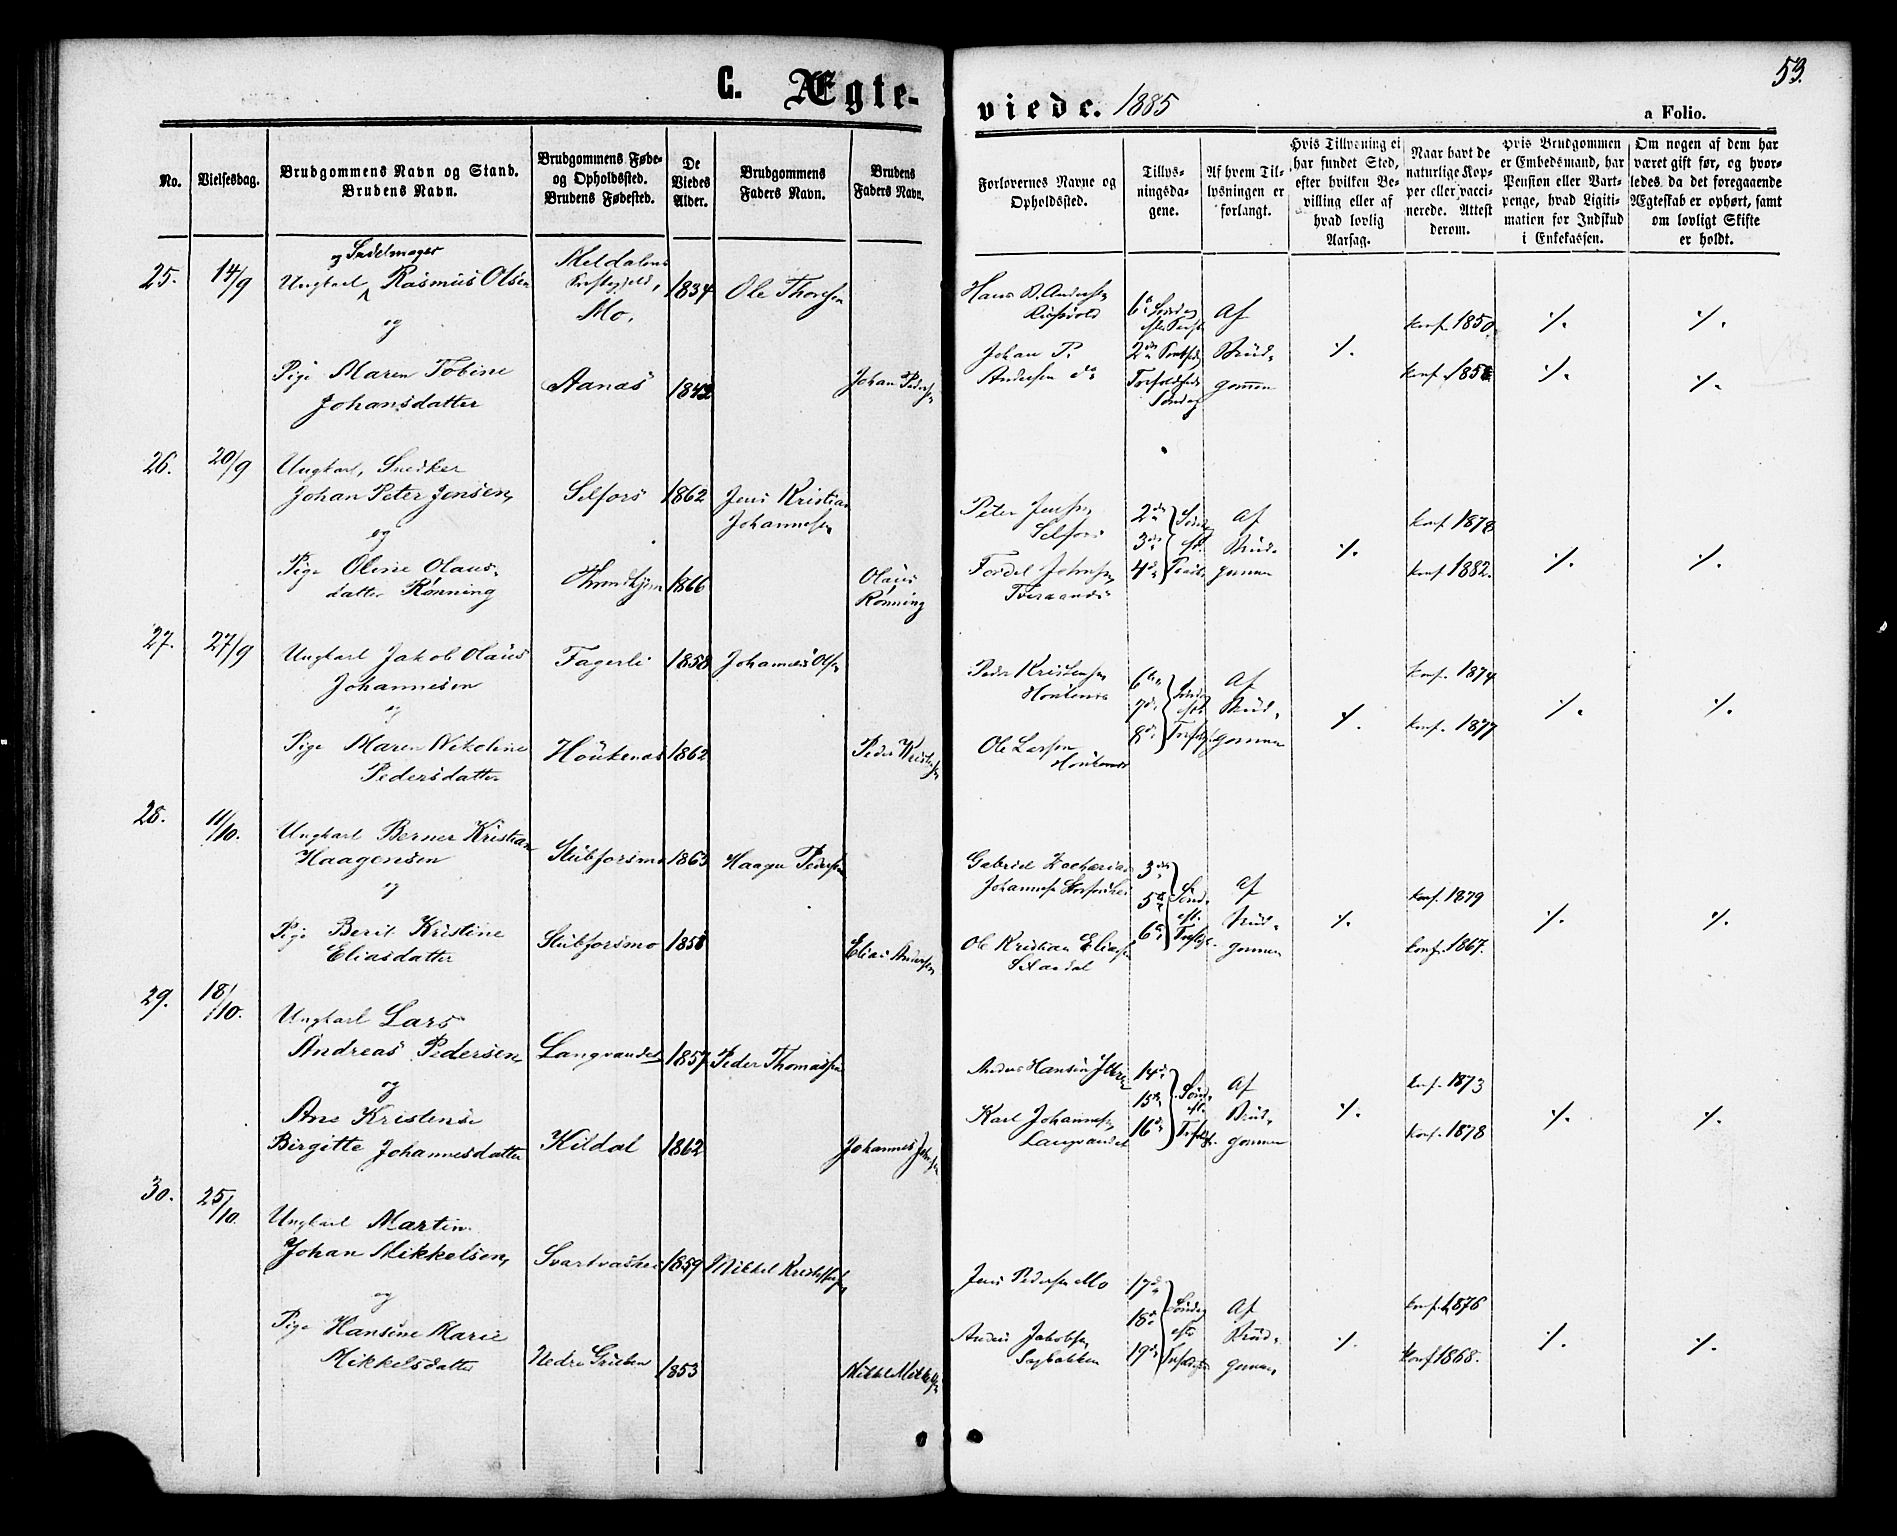 53.
C. Ægte-
viede. 1885
a Folio.
No.
Vielsesdag.
Brudgommens Navn og Stand.
Brudens Navn.
Brudgommens Føde-
og Opholdssted.
Brudens Fødested.
De
Viedes
Alder.
Brudgommens
Faders Navn.
Brudens
Faders Navn.
Forlovernes Navne og
Opholdssted.
Tillys-
ningsda-
gene.
Af hvem Til-
lysningen er
forlangt.
Hvis Tillysning ei
har fundet Sted,
efter hvilken Be-
villing eller af
hvad lovlig
Aarsag.
Naar havt de
naturlige Kop-
per eller vacci-
nerede. Attest
derom.
Hvis Brudgommen
er Embedsmand, har
Pension eller Vart-
penge, hvad Ligiti-
mation for Indskud
i Enkekassen.
Om nogen af dem har
været gift før, og hvor-
ledes da det foregaaende
Ægteskab er ophørt, samt
om lovligt Skifte
er holdt.
25.
14/9
og Sadelmager
Ungkarl Rasmus Olsen
og
Pige Maren Tobine
Johansdatter
Meldalens
Præstegjeld,
Mo.
Aanæs
1834
1842
Ole Thoresen
Johan Pedersen
Hans Andersen
Johan P.
Andersen do
6te Søndag
2den
Søndag
Af
Brud-
gommen
./.
konf. 1850.
konf. 185
./.
./.
./.
./.
26.
20/9
Ungkarl, Snedker
Johan Peter Jensen,
og
Pige Oline Olaus-
datter Rønning
Selfors
Throndhjem
1862
1866
Jens Kristian
Johannesen
Olaus
Rønning
Peter Jensen
Selfors
Johnsen
Tveraanes
2den
3de
4de
Af
Brud-
gommen
./.
konf. 1878
konf. 1882.
./.
./.
27.
27/9
Ungkarl Jakob Olaus
Johannesen
og
Pige Maren Nikoline
Pedersdatter
Fagerli
Høukenæs
1858
1862
Johannes Olsen
Peder Kristensen
Peder Kristensen
Høukenæs
Ole Larsen
Høukenæs
6te
7de
8de
Af
Brud-
gommen
./.
konf. 1874
konf. 1877
./.
./.
28.
11/10.
Ungkarl Berner Kristian
Haagensen
og
Pige Berit Kristine
Eliasdatter
Stubforsmo
Stubforsmo
1863
185
Haagen Pedersen
Elias Andersen
Gabriel Zacharias
Johannesen
Ole Kristian Eliasen
3die
5te
6te
Af
Brud-
gommen
./.
konf. 1879
konf. 1867.
./.
./.
29.
18/10.
Ungkarl Lars
Andreas Pedersen
og
Ane Kristense
Birgitte Johannesdatter
Langvandet
Kildal
1857
1862
Peder Thomassen
Johannes
Anders Hansen Ytteren
Karl Johannesen
Langvandet
14de
15de
16de
Af
Brud-
gommen
./.
konf. 1873
konf. 1878
./.
./.
30.
25/10.
Ungkarl Martin
Johan Mikkelsen,
og
Pige Hansine Marie
Mikkelsdatter
Svartvashei
Nedre Gruben
1859
1853
Mikkel Kristoffersen
Mikkel Mikkelsen
Jens Pedersen Mo
Anders Jakobsen
Sagbakken
17de
18de
19de
Af
Brud-
gommen
./.
konf. 1876
konf 1868.
./.
./.